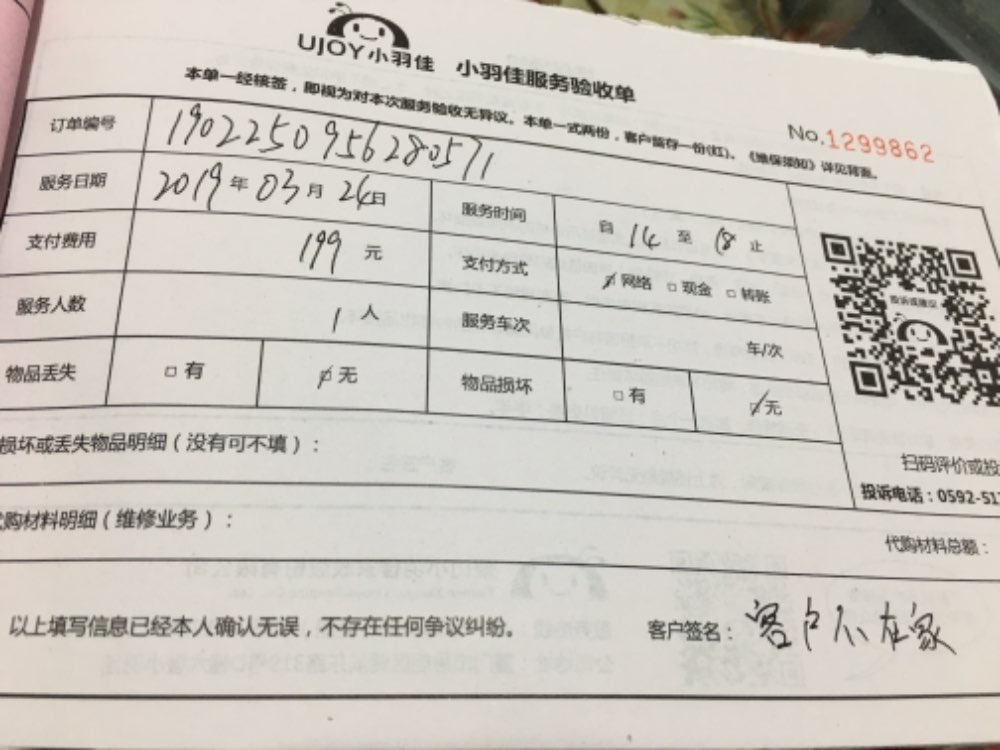 UJOY小羽佳 小羽佳服务验收单
本单一经核签，即视为对本次服务验收无异议。本单一式两份，客户留存一份(红)。《维保须知》详见背面。
No.1299862
订单编号 1902250956280571
服务日期 2019年03月24日 服务时间 自 14 至 18 止
支付费用 199 元 支付方式 网络 □现金 □转账
服务人数 1人 服务车次 车/次
物品丢失 □有 无 物品损坏 □有 无
投诉或建议
扫码评价或投
投诉电话：0592-51
损坏或丢失物品明细（没有可不填）：
购材料明细（维修业务）：
代购材料总额：
以上填写信息已经本人确认无误，不存在任何争议纠纷。 客户签名：客户不在家